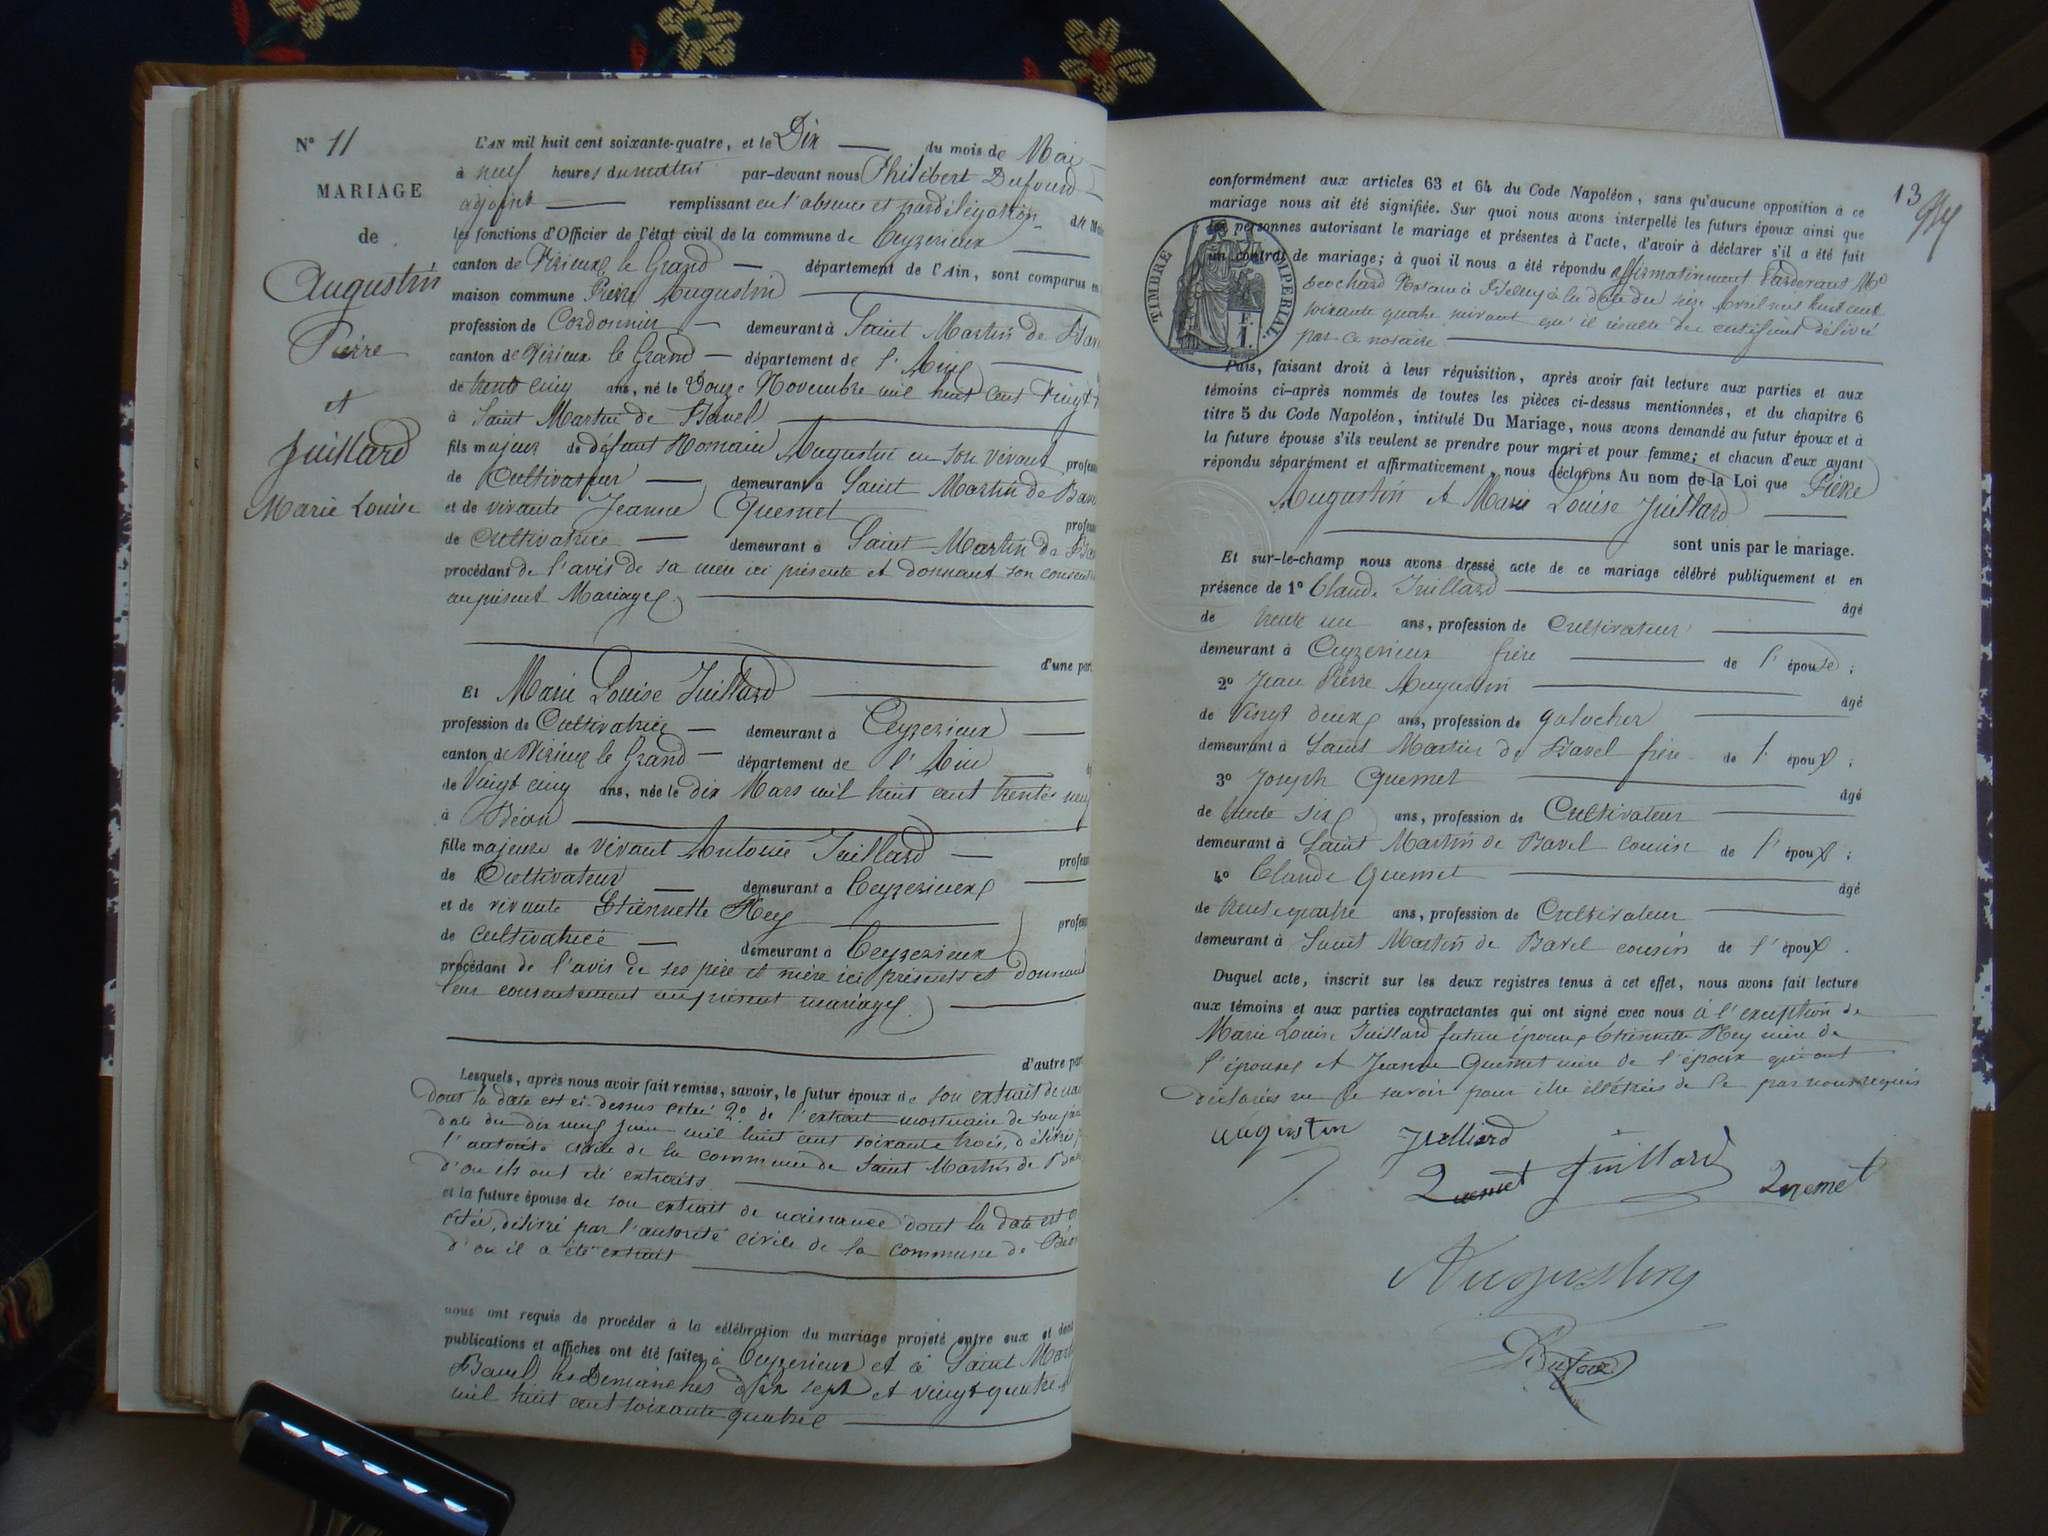 N° 11
MARIAGE
de
Augustin
Pierre
et
Juillard
Marie Louise
L'AN mil huit cent soixante-quatre, et le Dix du mois de Mai
à neuf heures du matin par-devant nous Philibert Dufour
adjoint remplissant en l'absence et par délégation
les fonctions d'Officier de l'état civil de la commune de Ceyzerieux
canton de Virieux le Grand département de l'Ain, sont comparus en
maison commune Pierre Augustin
profession de Cordonnier demeurant à Saint Martin de
canton de Virieux le Grand département de l'Ain
de trente cinq ans, né le Douze Novembre mil huit cent Vingt
à Saint Martin de Bavel
fils majeur de défunt Romain Augustin en son vivant
de Cultivateur demeurant à Saint Martin de
et de vivante Jeanne Quemet
de Cultivatrice demeurant à Saint Martin de
procédant de l'avis de sa mère ici présente et donnant son
au présent Mariage
d'une
Et Marie Louise Juillard
profession de Cultivatrice demeurant à Ceyzerieux
canton de Virieux le Grand département de l'Ain
de Vingt cinq ans, née le dix Mars mil huit cent trente neuf
à Béon
fille majeure de vivant Antoine Juillard
de Cultivateur demeurant à Ceyzerieux
et de vivante Etiennette Rey
de Cultivatrice demeurant à Ceyzerieux
procédant de l'avis de ses père et mère ici présents et donnant
leur consentement au présent mariage
d'autre
Lesquels, après nous avoir fait remise, savoir, le futur époux de son extrait de
dont la date est ci-dessus citée 2° de l'extrait mortuaire de son père
date du dix neuf juin mil huit cent soixante trois, délivrés
l'autorité civile de la commune de Saint Martin de
d'où ils ont été extraits
et la future épouse de son extrait de naissance dont la date est
citée, délivré par l'autorité civile de la commune de Béon
d'où il a été extrait
nous ont requis de procéder à la célébration du mariage projeté entre eux et dont
publications et affiches ont été faites à Ceyzerieux et à Saint
Bavel les Dimanches dix sept et vingt quatre
mil huit cent soixante quatre
13
conformément aux articles 63 et 64 du Code Napoléon, sans qu'aucune opposition à ce
mariage nous ait été signifiée. Sur quoi nous avons interpellé les futurs époux ainsi que
les personnes autorisant le mariage et présentes à l'acte, d'avoir à déclarer s'il a été fait
un contrat de mariage; à quoi il nous a été répondu affirmativement Pardevant Me
Notaire à Belley à la date du seize Avril mil huit cent
soixante quatre suivant qu'il résulte du certificat délivré
par ce notaire
TIMBRE IMPERIAL
F.
1.
Puis, faisant droit à leur réquisition, après avoir fait lecture aux parties et aux
témoins ci-après nommés de toutes les pièces ci-dessus mentionnées, et du chapitre 6
titre 5 du Code Napoléon, intitulé Du Mariage, nous avons demandé au futur époux et à
la future épouse s'ils veulent se prendre pour mari et pour femme; et chacun d'eux ayant
répondu séparément et affirmativement, nous déclarons Au nom de la Loi que Pierre
Augustin et Marie Louise Juillard
sont unis par le mariage.
Et sur-le-champ nous avons dressé acte de ce mariage célébré publiquement et en
présence de 1° Claude Juillard âgé
de trente un ans, profession de Cultivateur
demeurant à Ceyzerieux frère de l'épouse;
2° Jean Pierre Augustin âgé
de Vingt deux ans, profession de galocher
demeurant à Saint Martin de Bavel frère de l'époux;
3° Joseph Quemet âgé
de trente six ans, profession de Cultivateur
demeurant à Saint Martin de Bavel cousin de l'époux;
4° Claude Quemet âgé
de trente quatre ans, profession de Cultivateur
demeurant à Saint Martin de Bavel cousin de l'époux.
Duquel acte, inscrit sur les deux registres tenus à cet effet, nous avons fait lecture
aux témoins et aux parties contractantes qui ont signé avec nous à l'exception de
Marie Louise Juillard future épouse Etiennette Rey mère de
l'épouse et Jeanne Quemet mère de l'époux qui ont
déclarées ne le savoir pour être illétrées de ce par nous requis
augustin Juilliard
Quemet Juillard Quemet
Augustin
Dufour